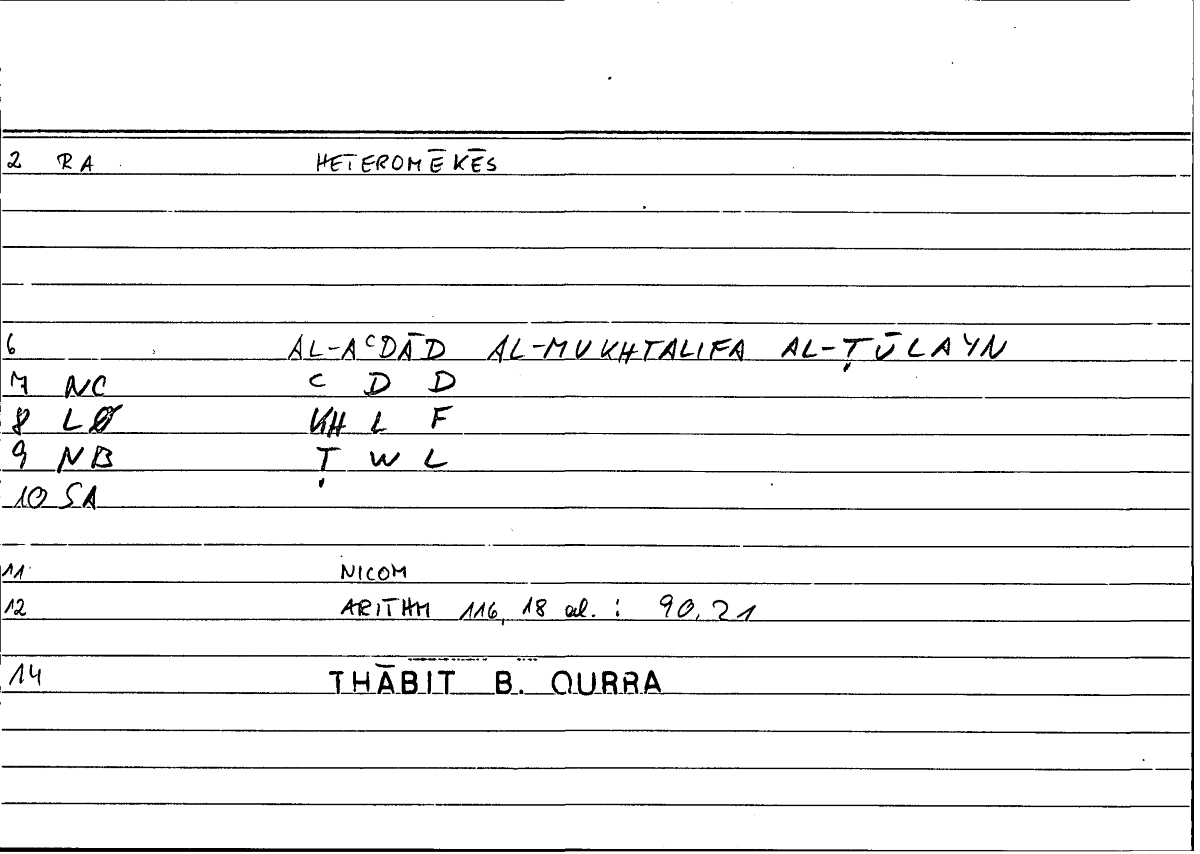 2 RA HETEROMĒKĒS
6 AL-AᶜDĀD AL-MUKHTALIFA AL-ṬŪLAYN
7 NC ᶜ D D
8 LØ KH L F
9 NB Ṭ W L
10 SA
11 NICOM
12 ARITHM 116, 18 al. : 90.21
14 THĀBIT B. QURRA